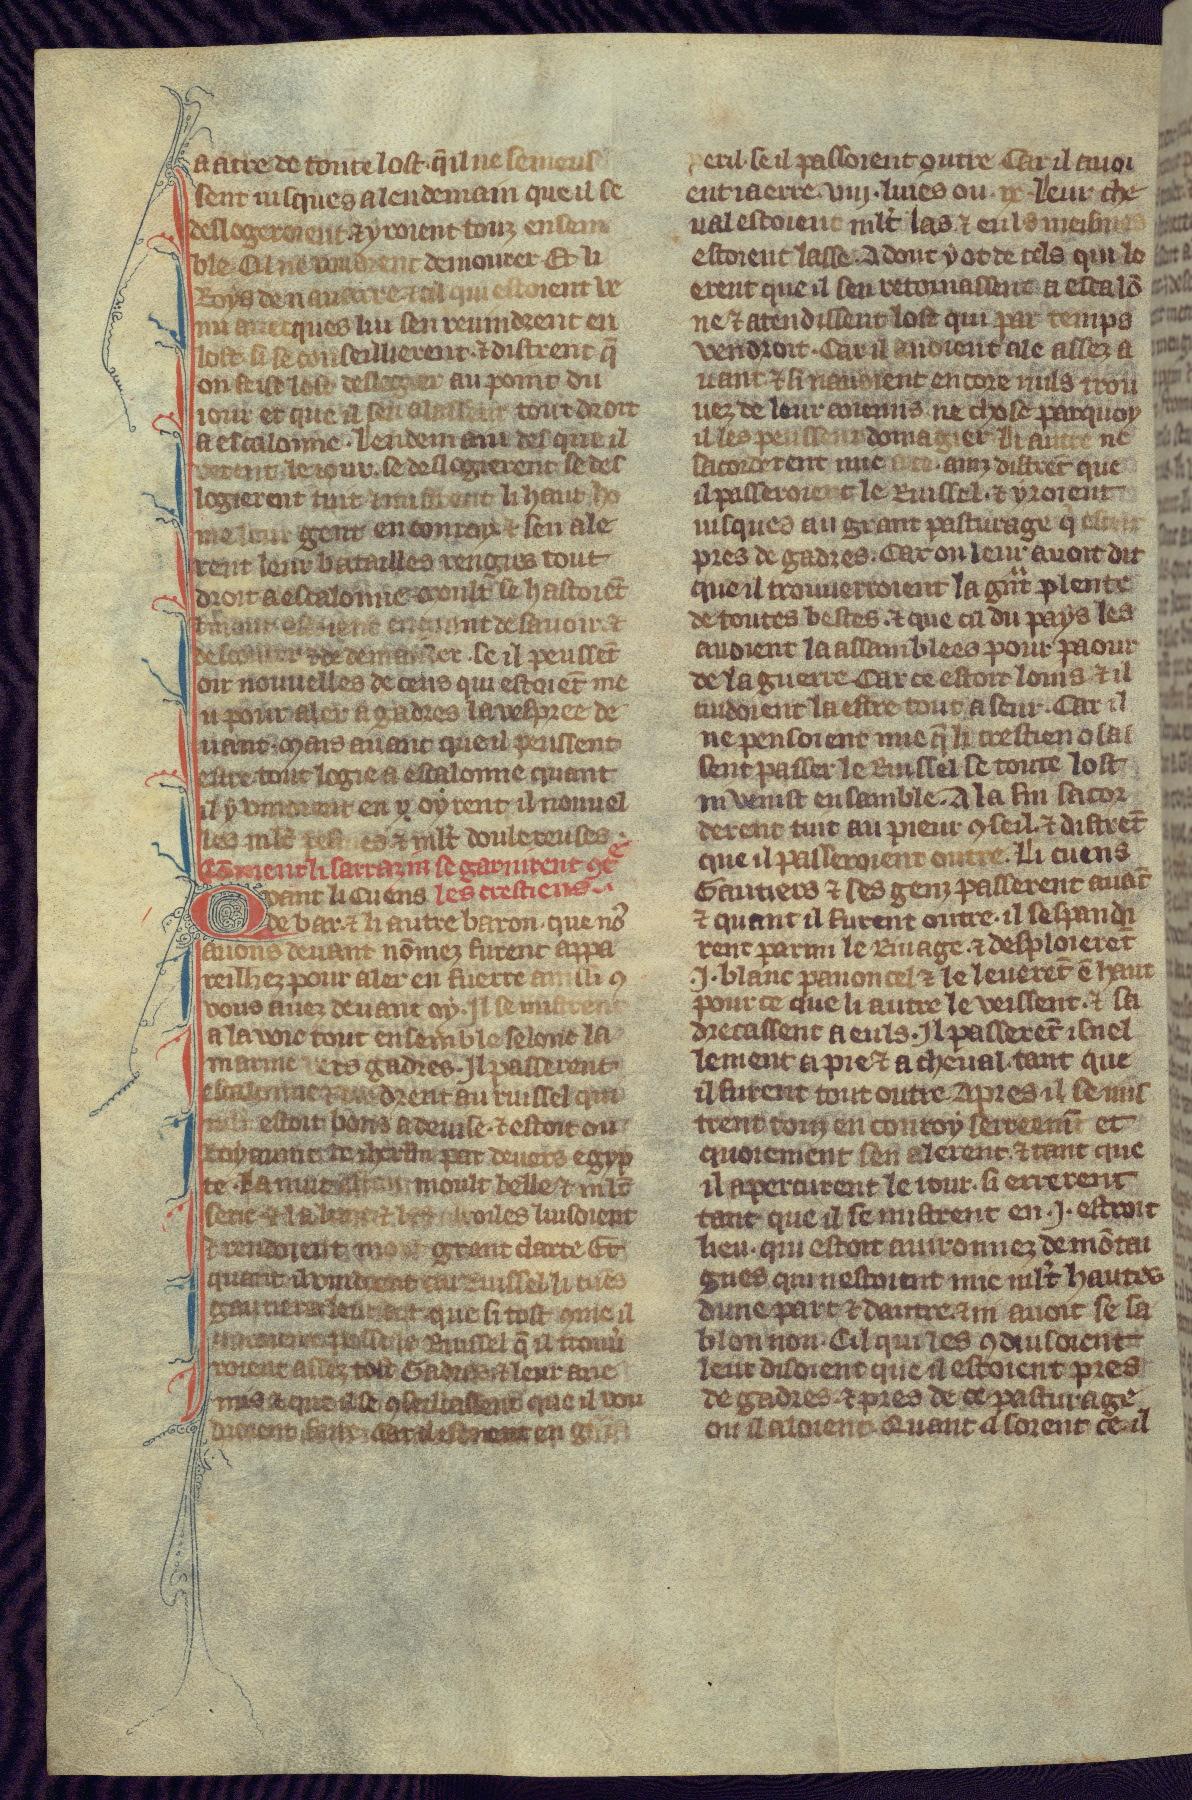 a atre de toute lost. q̄ il ne se meus
sent iusques a lendemain que il se
deslogeroient. ⁊ yroient touz ensem
ble. Cil ne voudrent demourer Et li
Roys de nauarre. ⁊ cil qui estoient ve
nu auecques lui sen reuindrent en
lost. si se conseillierent. ⁊ distrent q̄
on feist lost deslogier au point du
iour et que il sen alassent tout droit
a escalonne. Lendemain des que il
virent le iour. se deslogierent se des
logierent tuit ⁊ mistrent li haut ho
me leur gent en conroy ⁊ sen ale
rent leur batailles rengies tout
droit a escalonne moult se hastoiēt
⁊ mout estoient en grant de sauoir. ⁊
descouter ⁊ de demander. se il peussēt
oir nouuelles de ceus qui estoiēt me
u pour aler a gadres la vespree de
uant. Mais auant que il peussent
estre tout logie a escalonne quant
il y vindrent en oyrent il nouuel
les ml̄t pesmes ⁊ ml̄t doulereuses.
Cōment li sarrazin se garnirent 9tͤ
les crestiens
Quant li Cuens
de bar. ⁊ li autre baron. que noꝰ
auons deuant nōmez furent appa
reilliez pour aler en fuerre ainssi 9
vous auez deuant oy. Il se mistrent
a la voie tout ensemble selonc la
marine vers gadres. Il passerent
escalonne ⁊ vindrent au ruissel qui
ml̄t estoit bons a deuise. ⁊ estoit ou
par deuers egyp
te. La nuit estoit moult belle ⁊ ml̄t
serie ⁊ la lune ⁊ les estoiles luisoient
⁊ rendoient mout grant clarte Et
quant il vindrent au Ruissel li cuēs
gautiers leur dit que si tost 9me il
auroient passe le Ruissel q̄ il trouu̍
roient assez tost Gadres ⁊ leur ane
mis ⁊ que il se 9seillassent que il vou
droient faire. Car il estoient en grant
peril. se il passoient outre Car il auoi
ent ia erre. viij. liues ou. ix. leur che
ual estoient ml̄t las ⁊ euls meismes
estoient lasse. Adont y ot de tels qui lo
erent que il sen retornassent a escalō
ne ⁊ atendissent lost qui par temps
vendroit. Car il auoient ale assez a
uant ⁊ si nauoient encore nuls trou
uez de leur anemis. ne chose parquoy
il les peussent domagier Li autre ne
sacorderent mie a ce. ainz distrēt que
il passeroient le Ruissel. ⁊ yroient
iusques au grant pasturage q̍ estoit
pres de gadres. Car on leur auoit dit
que il trouuerroient la grāt plente
de toutes bestes. ⁊ que cil du pays les
auoient la assamblees pour paour
de la guerre Car ce estoit loins ⁊ il
cudoient la estre tout a seur. Car il
ne pensoient mie q̄ li crestien osas
sent passer le Ruissel se toute lost
ni venist ensamble. A la fin sacor
derent tuit au pieur 9seil. ⁊ distrēt
que il passeroient outre. Li cuens
Gautiers ⁊ ses genz passerent auāt
⁊ quant il furent outre. il sespandi
rent parmi le Riuage. ⁊ desploierēt
.J. blanc panoncel ⁊ le leuerēt ē haut
pour ce que li autre le veissent. ⁊ sa
drecassent a euls. Il passerēt isnel
lement a pie ⁊ a cheual. tant que
il furent tout outre Apres il se mis
trent touz en conroy serreem̄t et
quoiement sen alerent. ⁊ tant que
il apercurent le iour. si errerent
tant que il se mistrent en .J. estroit
lieu. qui estoit auironnez de mōtai
gnes qui nestoient mie ml̄t hautes
dune part ⁊ dautre. ⁊ ni auoit se sa
blon non. Cil qui les 9duisoient
leur disoient que il estoient pres
de gadres. ⁊ pres de ce pasturage
ou il aloient. Quant il sorent ce. il